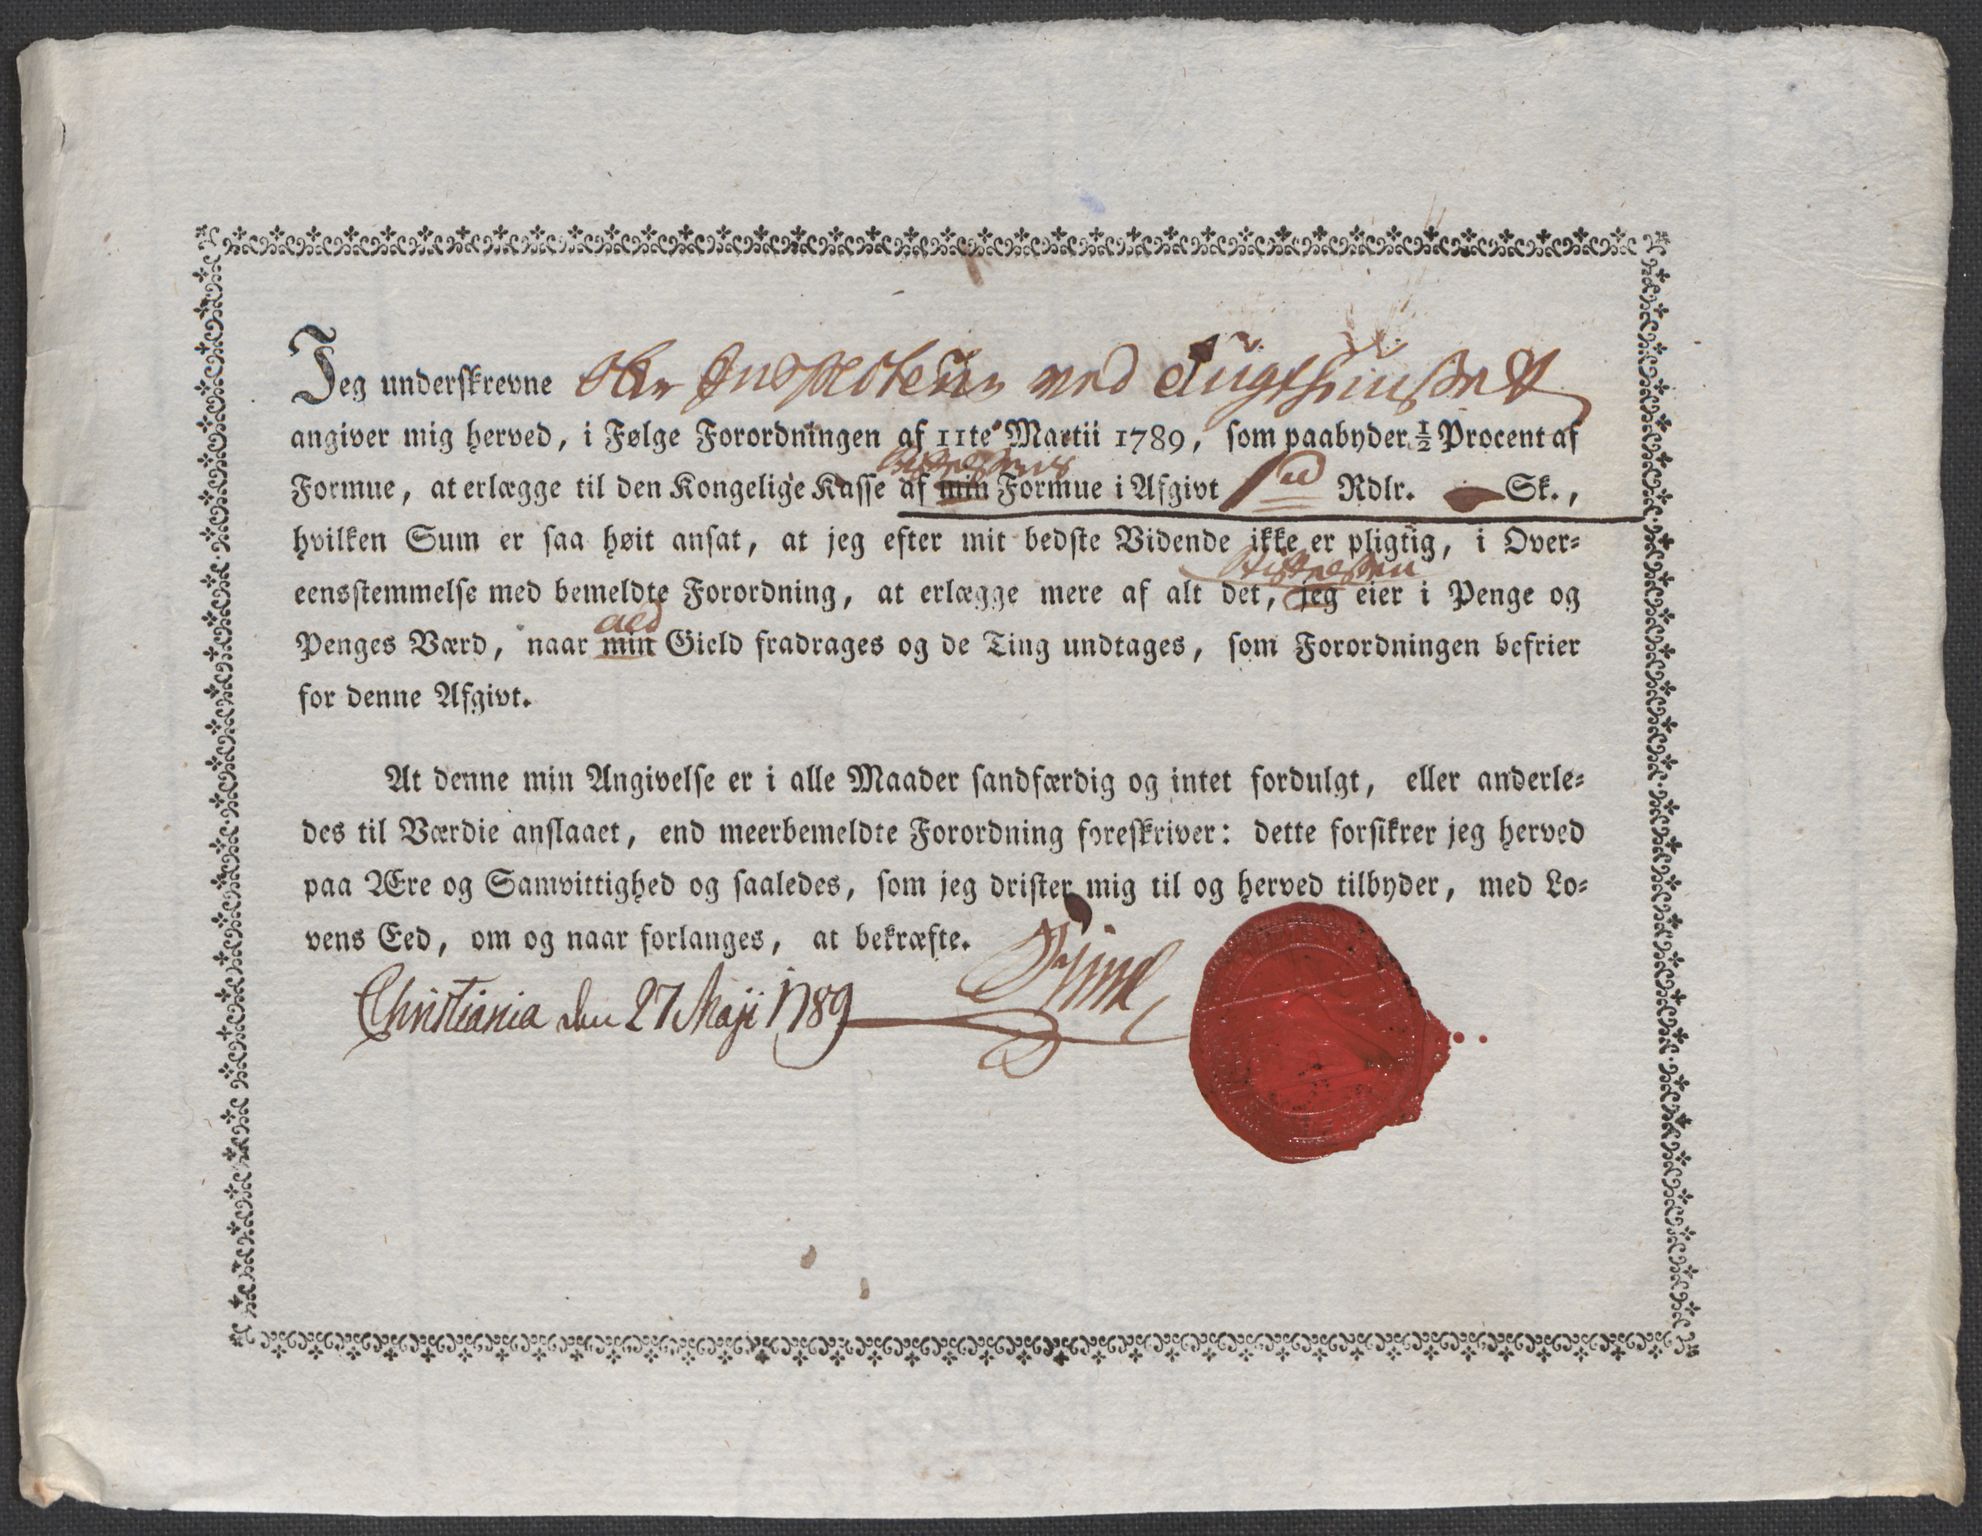 Jeg underskrevne Ober Inspecteur ved Tugthuuset
angiver mig herved, i Følge Forordningen af 11te Martii 1789, som paabyder ½ Procent af
Formue, at erlægge til den Kongelige Kasse af min Formue i Afgivt Rdlr. Sk.,
hvilken Sum er saa høit ansat, at jeg efter mit bedste Vidende ikke er pligtig, i Over=
eensstemmelse med bemeldte Forordning, at erlægge mere af alt det, jeg eier i Penge og
Penges Værd, naar min Gield fradrages og de Ting undtages, som Forordningen befrier
for denne Afgivt.
At denne min Angivelse er i alle Maader sandfærdig og intet fordulgt, eller anderle=
des til Værdie anslaaet, end meerbemeldte Forordning foreskriver: dette forsikrer jeg herved
paa Ære og Samvittighed og saaledes, som jeg drister mig til og herved tilbyder, med Lo=
vens Eed, om og naar forlanges, at bekræfte.
Christiania den 27 Maji 1789